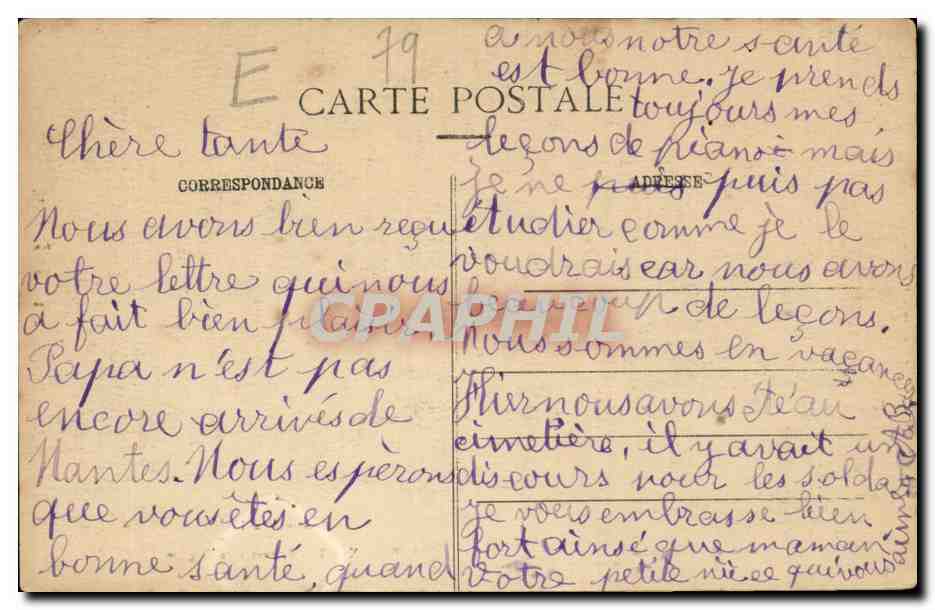 E 79
CARTE POSTALE
CORRESPONDANCE
ADRESSE
Chère tante
Nous avons bien reçu
votre lettre qui nous
a fait bien plaisir.
Papa n'est pas
encore arrivés de
Nantes. Nous espèrons
que vous êtes en
bonne santé, quand
a nous notre santé
est bonne. je prends
toujours mes
leçons de piano mais
je ne puis pas
étudier comme je le
voudrais car nous avons
beaucoup de leçons.
Nous sommes en vaçances
Hier nous avons été au
cimetière, il y avait un
discours pour les solda
je vous embrasse bien
fort ainsé que maman
Votre petite niéce qui vous
aime
CPAPHIL